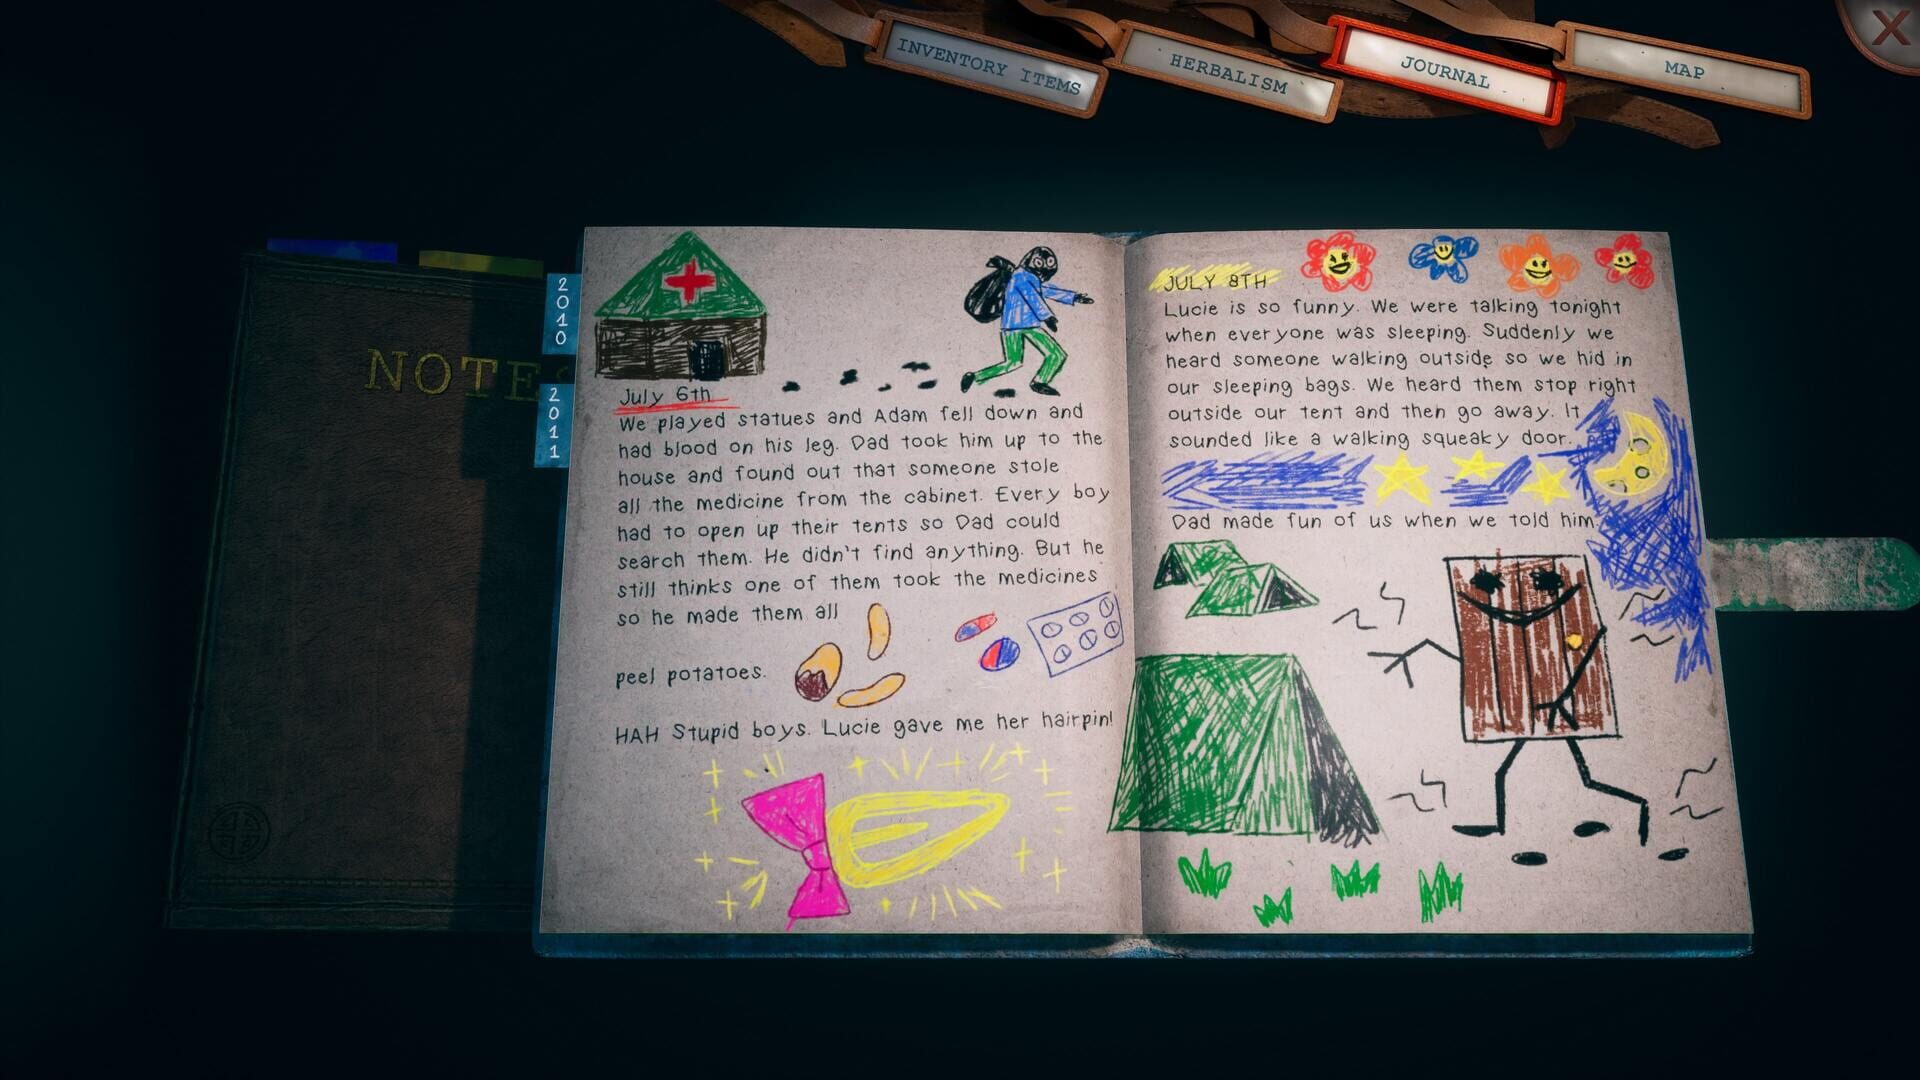 INVENTORY ITEMS
HERBALISM
JOURNAL
MAP
X
NOTE
2010
2011
July 6th
We played statues and Adam fell down and
had blood on his leg. Dad took him up to the
house and found out that someone stole
all the medicine from the cabinet. Every boy
had to open up their tents so Dad could
search them. He didn't find anything. But he
still thinks one of them took the medicines
so he made them all
peel potatoes.
HAH Stupid boys. Lucie gave me her hairpin!
JULY 8TH
Lucie is so funny. We were talking tonight
when everyone was sleeping. Suddenly we
heard someone walking outside so we hid in
our sleeping bags. We heard them stop right
outside our tent and then go away. It
sounded like a walking squeaky door.
Dad made fun of us when we told him.